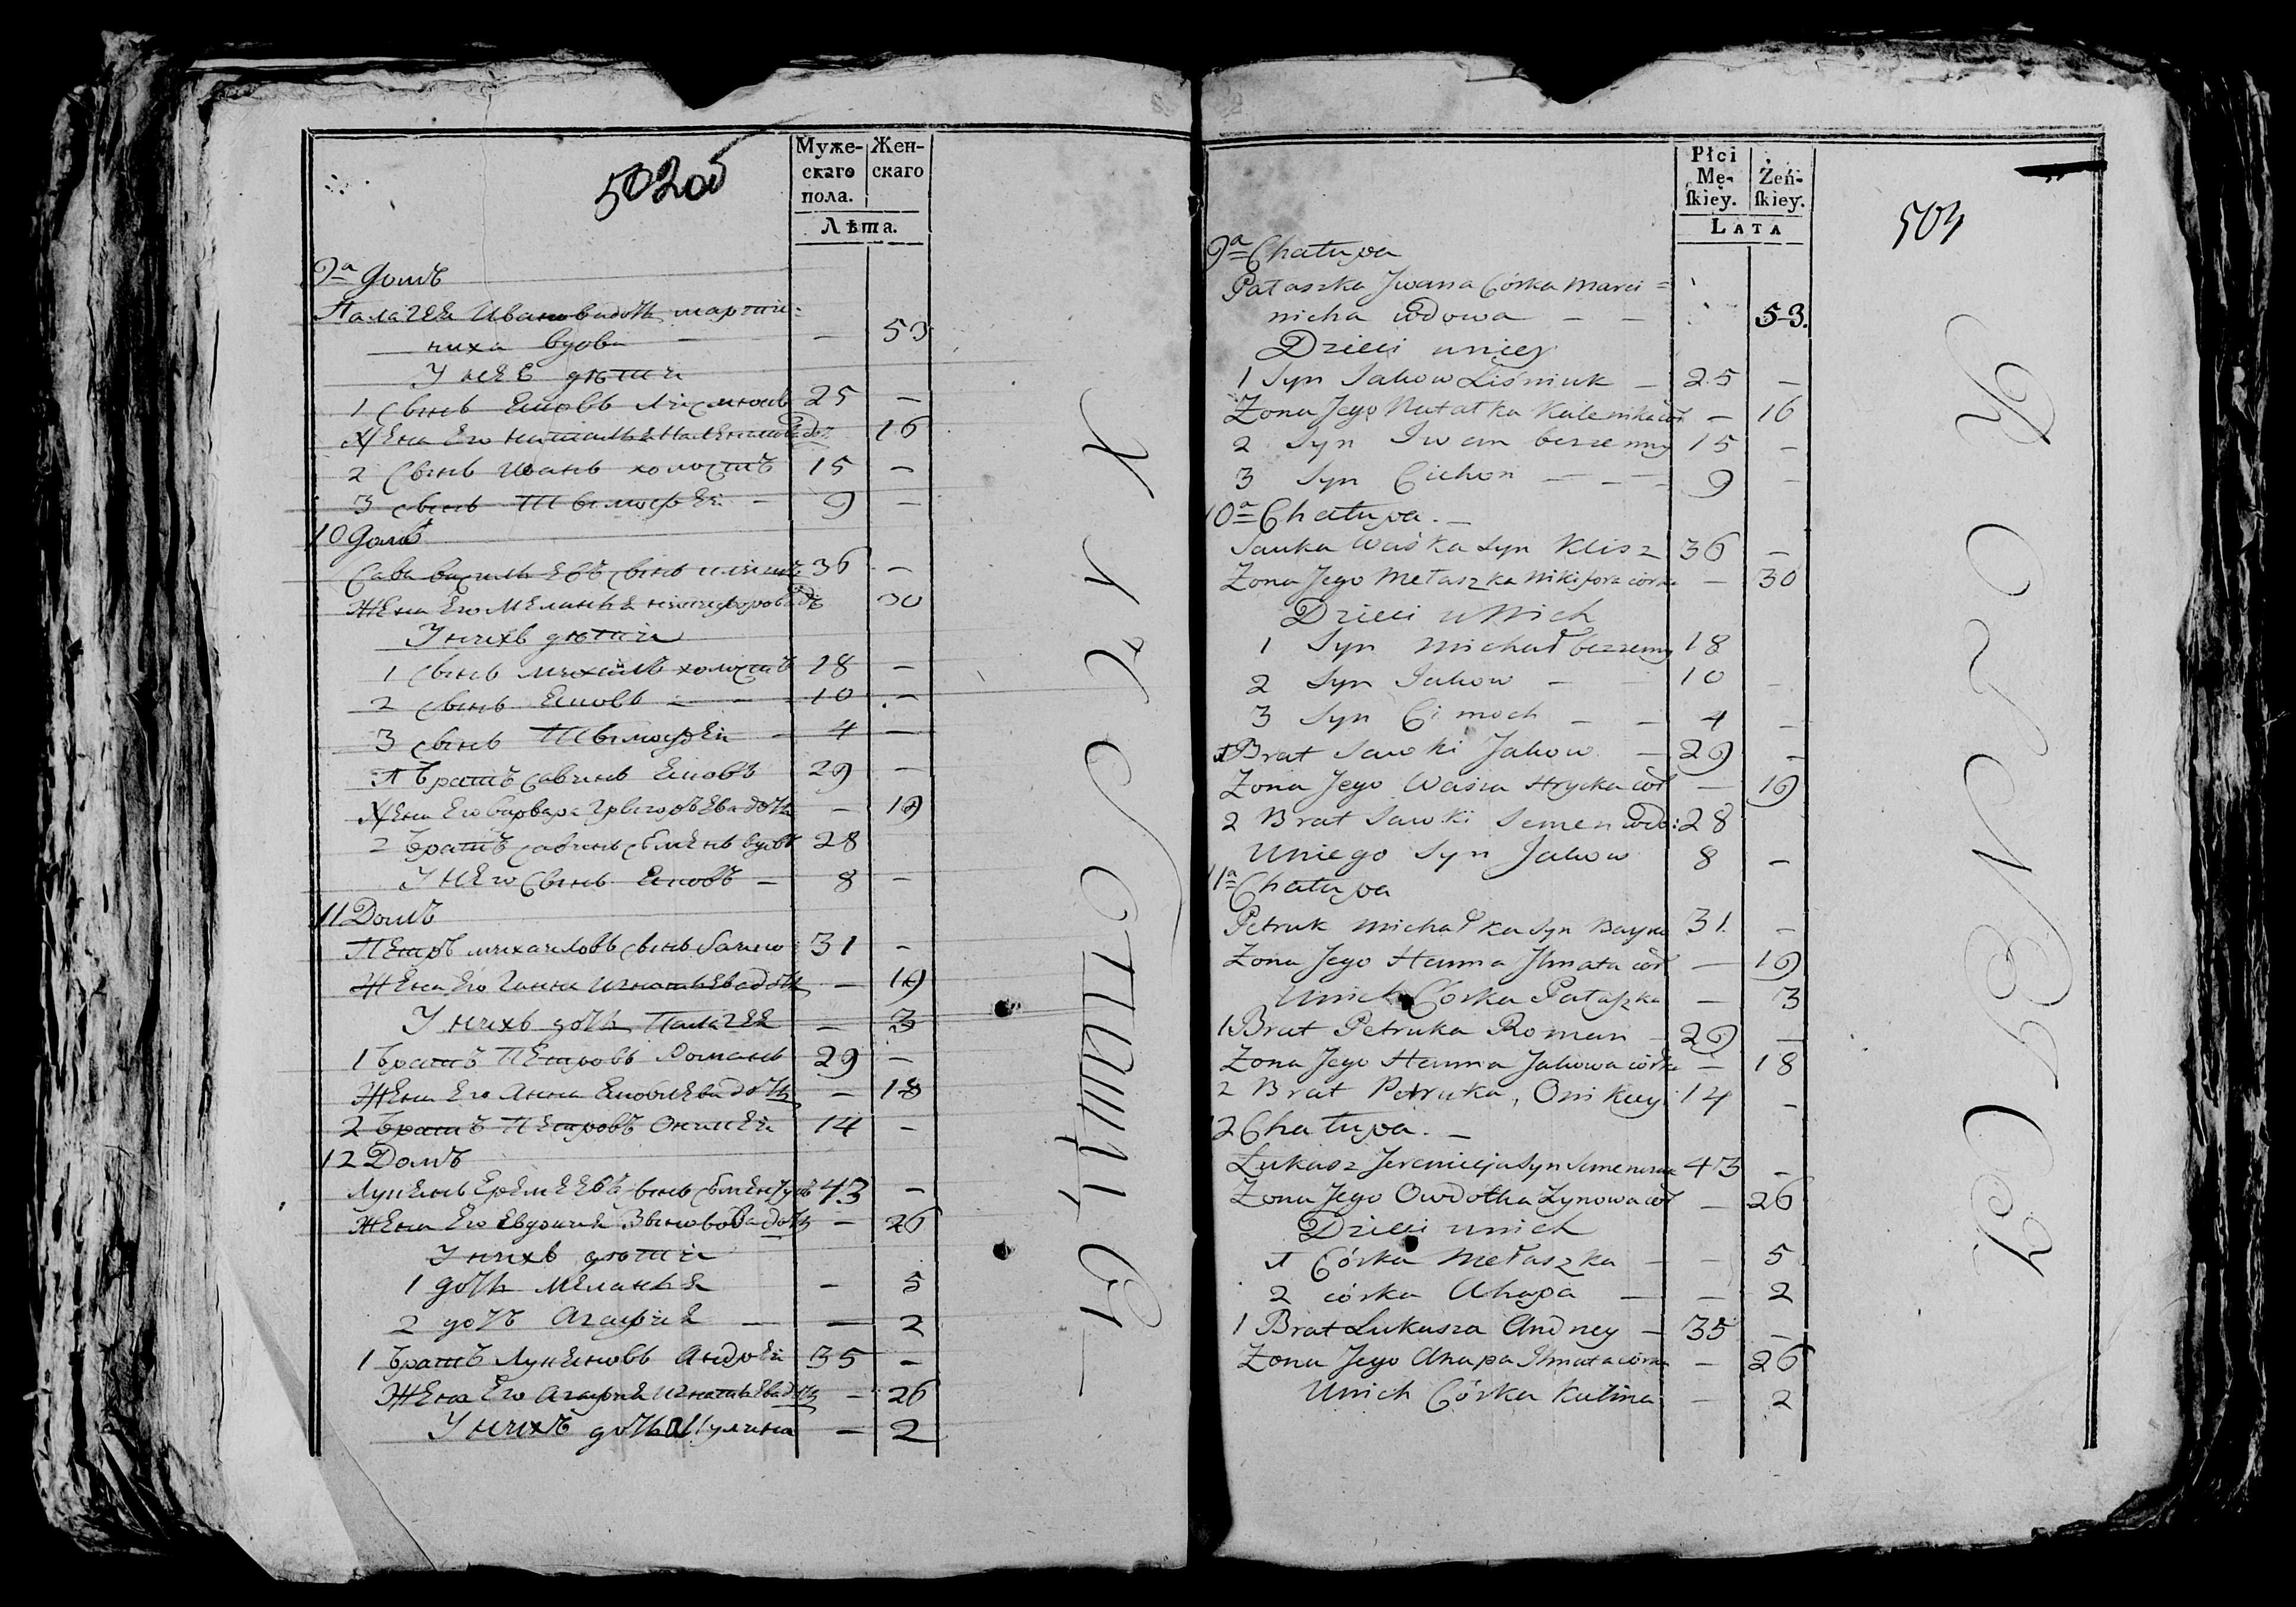 502об
Муже-
скаго
пола.
Жен-
скаго
Лѣта.
9а Домъ
Палагея Иванова дочь марти:
ниха вдова — — 53
У нее дѣти
1 сынъ Яковъ 25 —
Жена Его Наталья дочь 16
2 Сынъ Иванъ холостъ 15 —
3 сынъ Тимофей — 9 —
10 Домъ
Сава Васильевъ сынъ 36 —
Жена Его Меланья Никифорова 30
У нихъ дѣти
1 Сынъ Михайло холостъ 18 —
2 сынъ Яковъ — — 10 —
3 сынъ Тимофей — 4 —
1 Братъ Савинъ Яковъ 29 —
Жена Его Варвара Григорьева дочь — 19
2 Братъ Савинъ Семенъ вдовъ 28
У Него Сынъ Яковъ — 8 —
11 Домъ
Петръ Михайловъ сынъ 31 —
Жена Его Ганна Игнатьева дочь — 19
У нихъ дочь Палагея — 3
1 Братъ Петровъ Романъ 29 —
Жена Его Анна Яковлева дочь — 18
2 Братъ Петровъ Оникей 14 —
12 Домъ
Лукьянъ Еремеевъ сынъ 43 —
Жена Его Евдокия дочь — 26
У нихъ дѣти
1 дочь Меланья — 5
2 дочь Агафия — — 2
1 Братъ Лукьяновъ Андрей 35 —
Жена Его Агафия Игнатьева дочь — 26
У нихъ дочь Акулина — 2
Płci
Mę-
skiey.
Żeń-
skiey.
LATA
503
9a Chałupa
Pałaszka Jwana Córka Marci=
nicha wdowa — — 53.
Dzieci uniey
1 Syn Jakow Liśniuk — 25 —
Żona Jego Natałka — 16
2 Syn Jwan bezzenny 15 —
3 Syn Cichon — — — 9 —
10a Chałupa. —
Sauka Waśka Syn Klisz 36 —
Żona Jego Mełaszka Nikifora córka — 30
Dzieci u Nich
1 Syn Michał bezzenny 18
2 Syn Jakow — 10
3 Syn Cimoch — — 4 —
1 Brat Sawki Jakow — 29 —
Żona Jego Waśra Hryćka cór — 19
2 Brat Sawki Semen wdo: 28
Uniego Syn Jakow 8 —
11a Chałupa
Petruk Michałka Syn 31. —
Żona Jego Hanna Jhnata cór — 19
Unich Córka Pałaszka — 3
1 Brat Petruka Roman — 29 —
Żona Jego Hanna Jakowa córka — 18
2 Brat Petruka, Onikiey 14 —
12 Chałupa. —
Łukasz Jeremieja Syn 43 —
Żona Jego Owdotka cór — 26
Dzieci unich
1 Córka Mełaszka — — 5
2 córka Ahapa — — 2
1 Brat Łukasza Andrey — 35 —
Żona Jego Ahapa Jhnata córka — 26
Unich Córka Kulina — 2